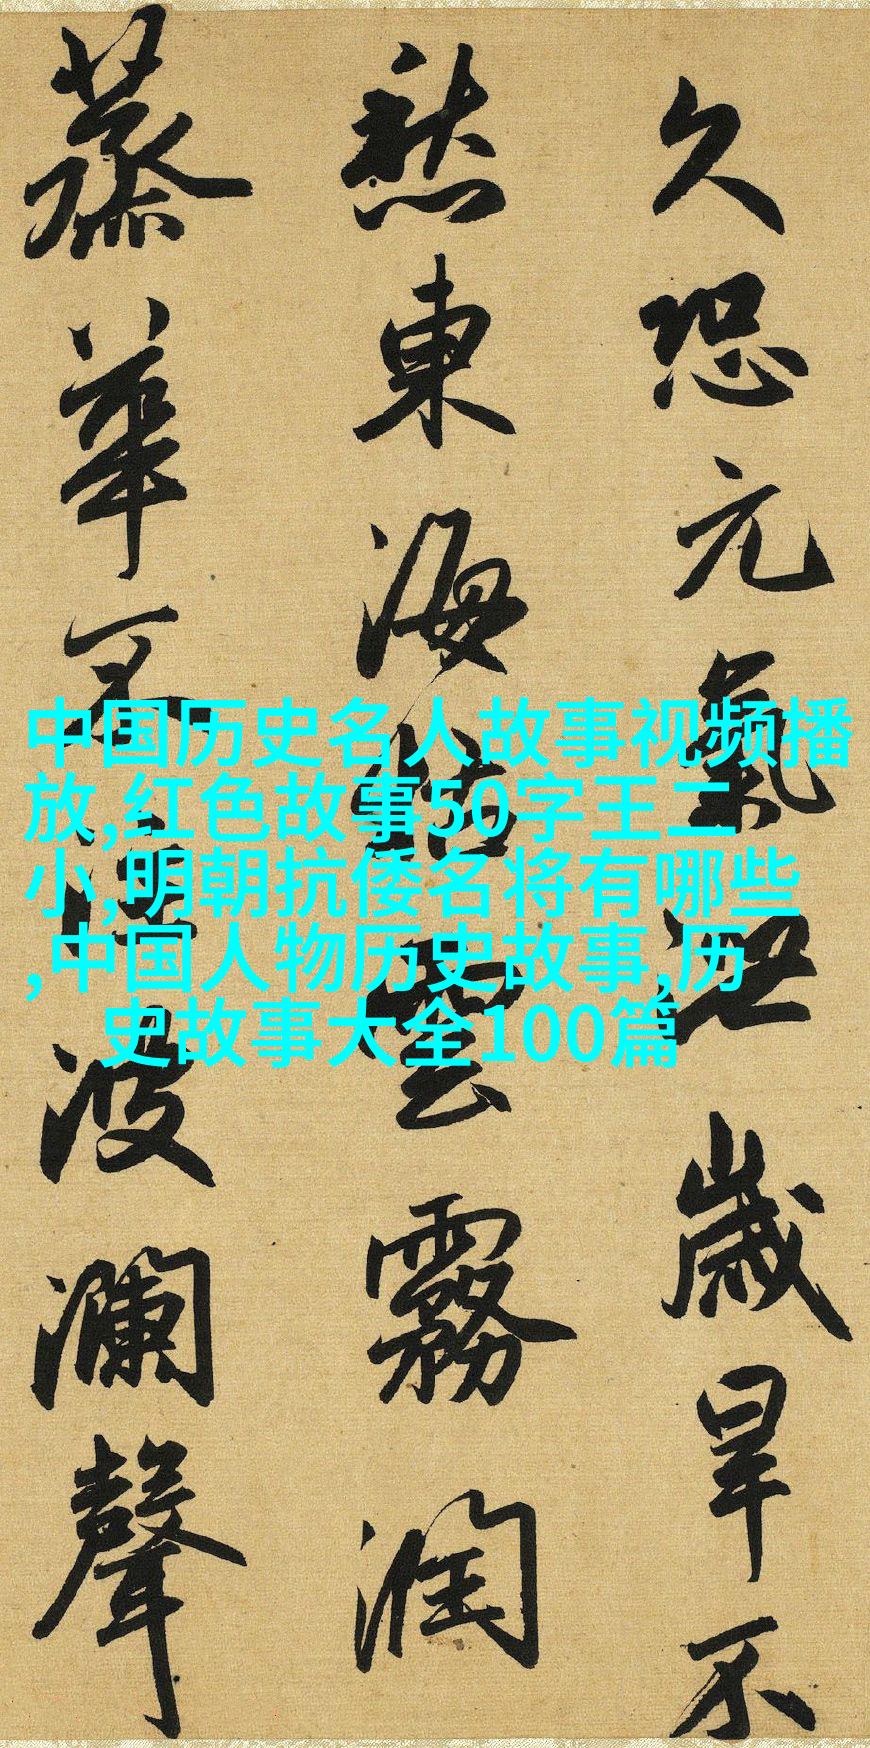 久恐元氣泄歲旱不
愁東海枯雲霧潤
蒸華不注波瀾聲
中国历史名人故事视频播
放,红色故事50字王二
小,明朝抗倭名将有哪些
,中国人物历史故事,历
史故事大全100篇